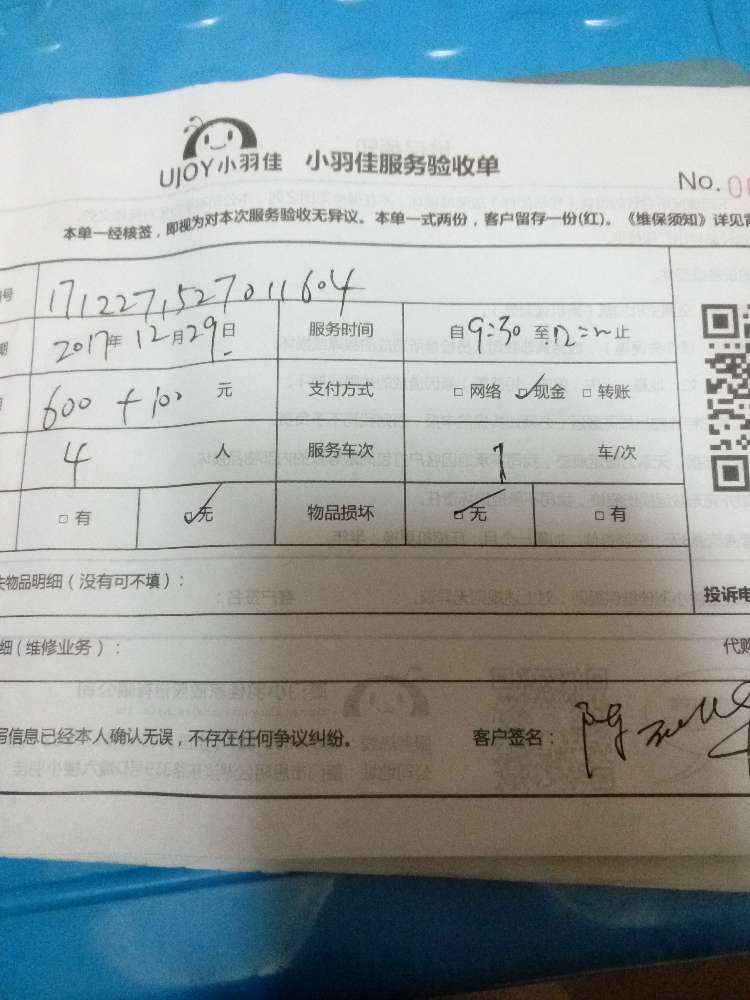 UJOY小羽佳 小羽佳服务验收单
No.
本单一经核签，即视为对本次服务验收无异议。本单一式两份，客户留存一份(红)。《维保须知》详见背
号 1712271527011604
期 2017年12月29日 服务时间 自9:30至 止
600+100 元 支付方式 □网络 ☑现金 □转账
4 人 服务车次 1 车/次
□有 ☑无 物品损坏 ☑无 □有
失物品明细（没有可不填）：
投诉电
细（维修业务）：
代购
写信息已经本人确认无误，不存在任何争议纠纷。 客户签名：